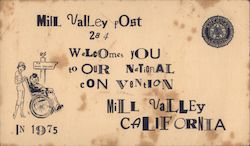 Mill Valley Post
284
Welcomes YOU
to OUR National
conVention
Mill Valley
CALIFORNIA
IN 1975